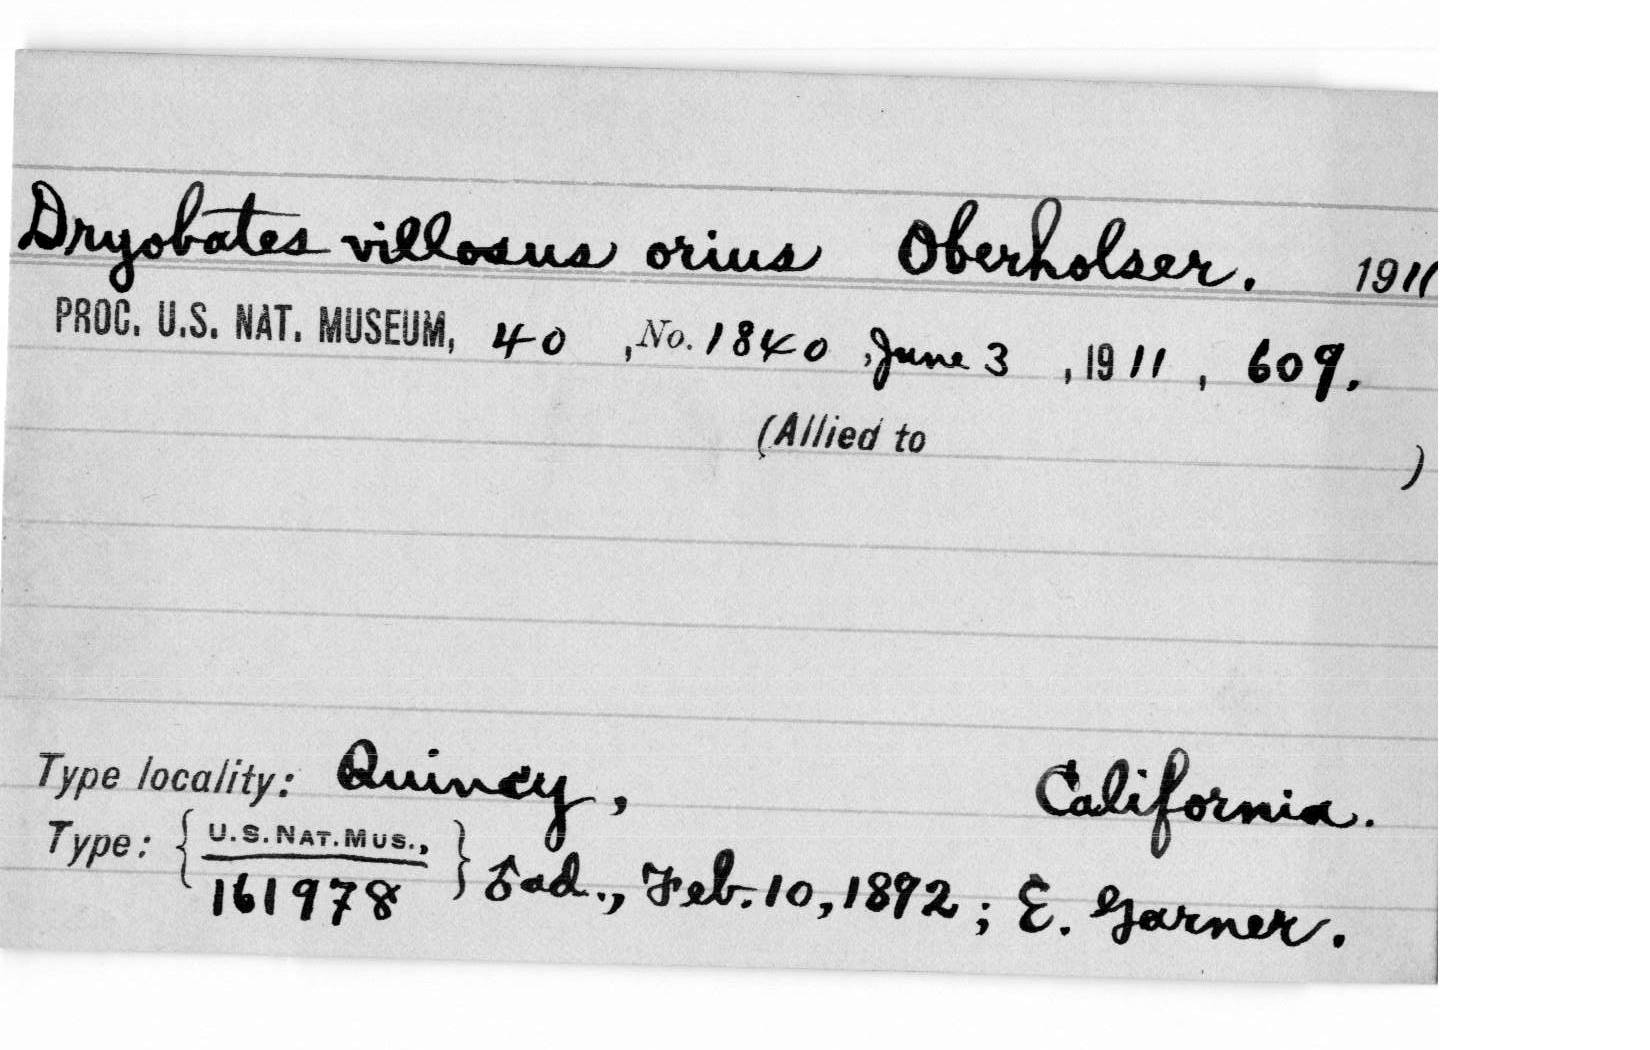 Dryobates villosus orius Oberholser. 1911
PROC. U.S. NAT. MUSEUM, 40, No. 1840, June 3, 1911, 609.
(Allied to )
Type locality: Quincy, California.
Type: { U.S. NAT. MUS., } ♂ ad., Feb. 10, 1892; E. Garner.
161978